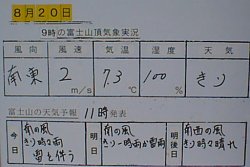 8月20日
9時の富士山頂気象実況
風向 風速 気温 湿度 天気
南東 2m/s 7.3℃ 100% きり
富士山の天気予報 11時発表
今日 南の風 きり時々雨 雷を伴う
明日 南の風 きり一時雨か雷雨
明後日 南西の風 きり時々晴れ